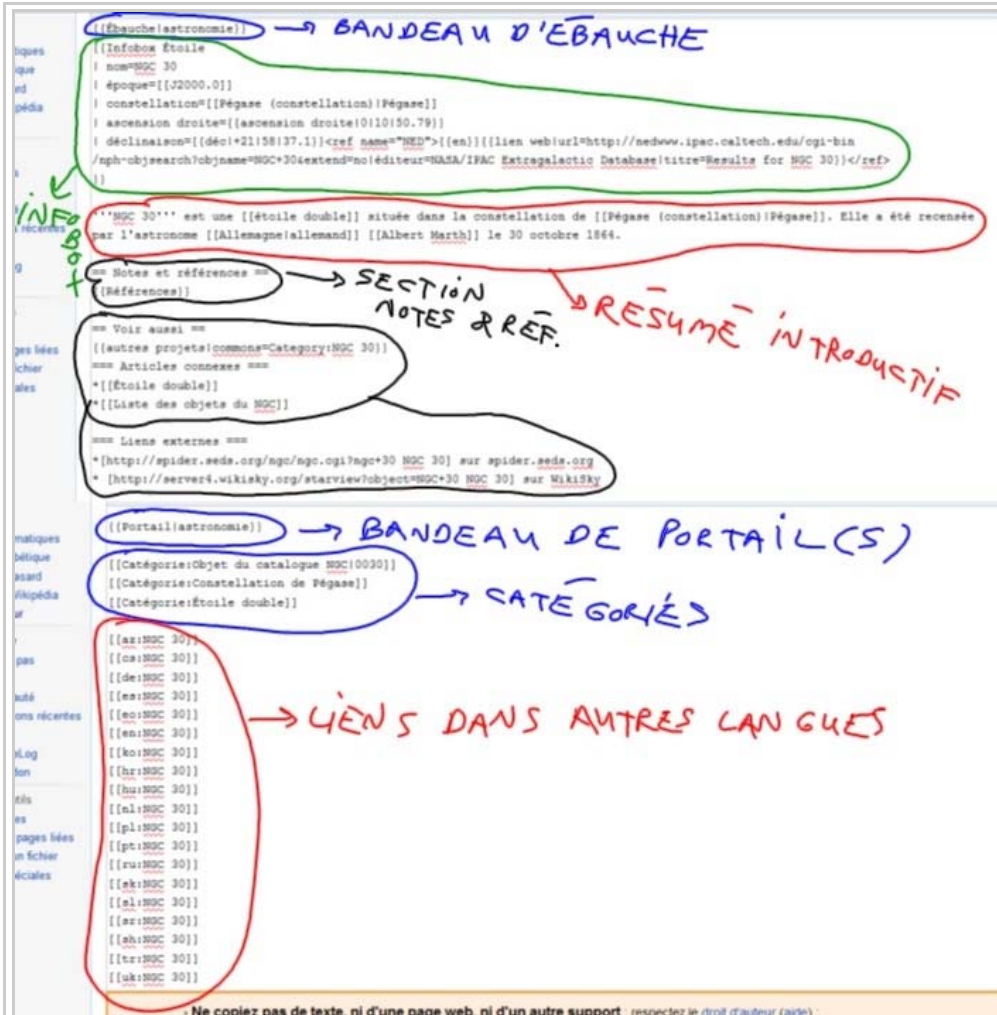 {{Ébauche|astronomie}} → BANDEAU D'ÉBAUCHE
{{Infobox Étoile
| nom=NGC 30
| époque=[[J2000.0]]
| constellation=[[Pégase (constellation)|Pégase]]
| ascension droite={{ascension droite|0|10|50.79}}
| déclinaison={{déc|+21|58|37.1}}<ref name="NED">{{en}}{{lien web|url=http://nedwww.ipac.caltech.edu/cgi-bin
/nph-objsearch?objname=NGC+30&extend=no|éditeur=NASA/IPAC Extragalactic Database|titre=Results for NGC 30}}</ref>
}}
INFOBOX
'''NGC 30''' est une [[étoile double]] située dans la constellation de [[Pégase (constellation)|Pégase]]. Elle a été recensée
par l'astronome [[Allemagne|allemand]] [[Albert Marth]] le 30 octobre 1864.
→ RÉSUMÉ INTRODUCTIF
== Notes et références ==
{{Références}}
→ SECTION
NOTES & RÉF.
== Voir aussi ==
{{autres projets|commons=Category:NGC 30}}
=== Articles connexes ===
*[[Étoile double]]
*[[Liste des objets du NGC]]
=== Liens externes ===
*[http://spider.seds.org/ngc/ngc.cgi?ngc+30 NGC 30] sur spider.seds.org
* [http://server4.wikisky.org/starview?object=NGC+30 NGC 30] sur WikiSky
{{Portail|astronomie}} → BANDEAU DE PORTAIL(S)
[[Catégorie:Objet du catalogue NGC|0030]]
[[Catégorie:Constellation de Pégase]]
[[Catégorie:Étoile double]]
→ CATÉGORIES
[[az:NGC 30]]
[[cs:NGC 30]]
[[de:NGC 30]]
[[es:NGC 30]]
[[eo:NGC 30]]
[[en:NGC 30]]
[[ko:NGC 30]]
[[hr:NGC 30]]
[[hu:NGC 30]]
[[nl:NGC 30]]
[[pl:NGC 30]]
[[pt:NGC 30]]
[[ru:NGC 30]]
[[sk:NGC 30]]
[[sl:NGC 30]]
[[sr:NGC 30]]
[[sh:NGC 30]]
[[tr:NGC 30]]
[[uk:NGC 30]]
→ LIENS DANS AUTRES LANGUES
Ne copiez pas de texte, ni d'une page web, ni d'un autre support : respectez le droit d'auteur (aide) ;